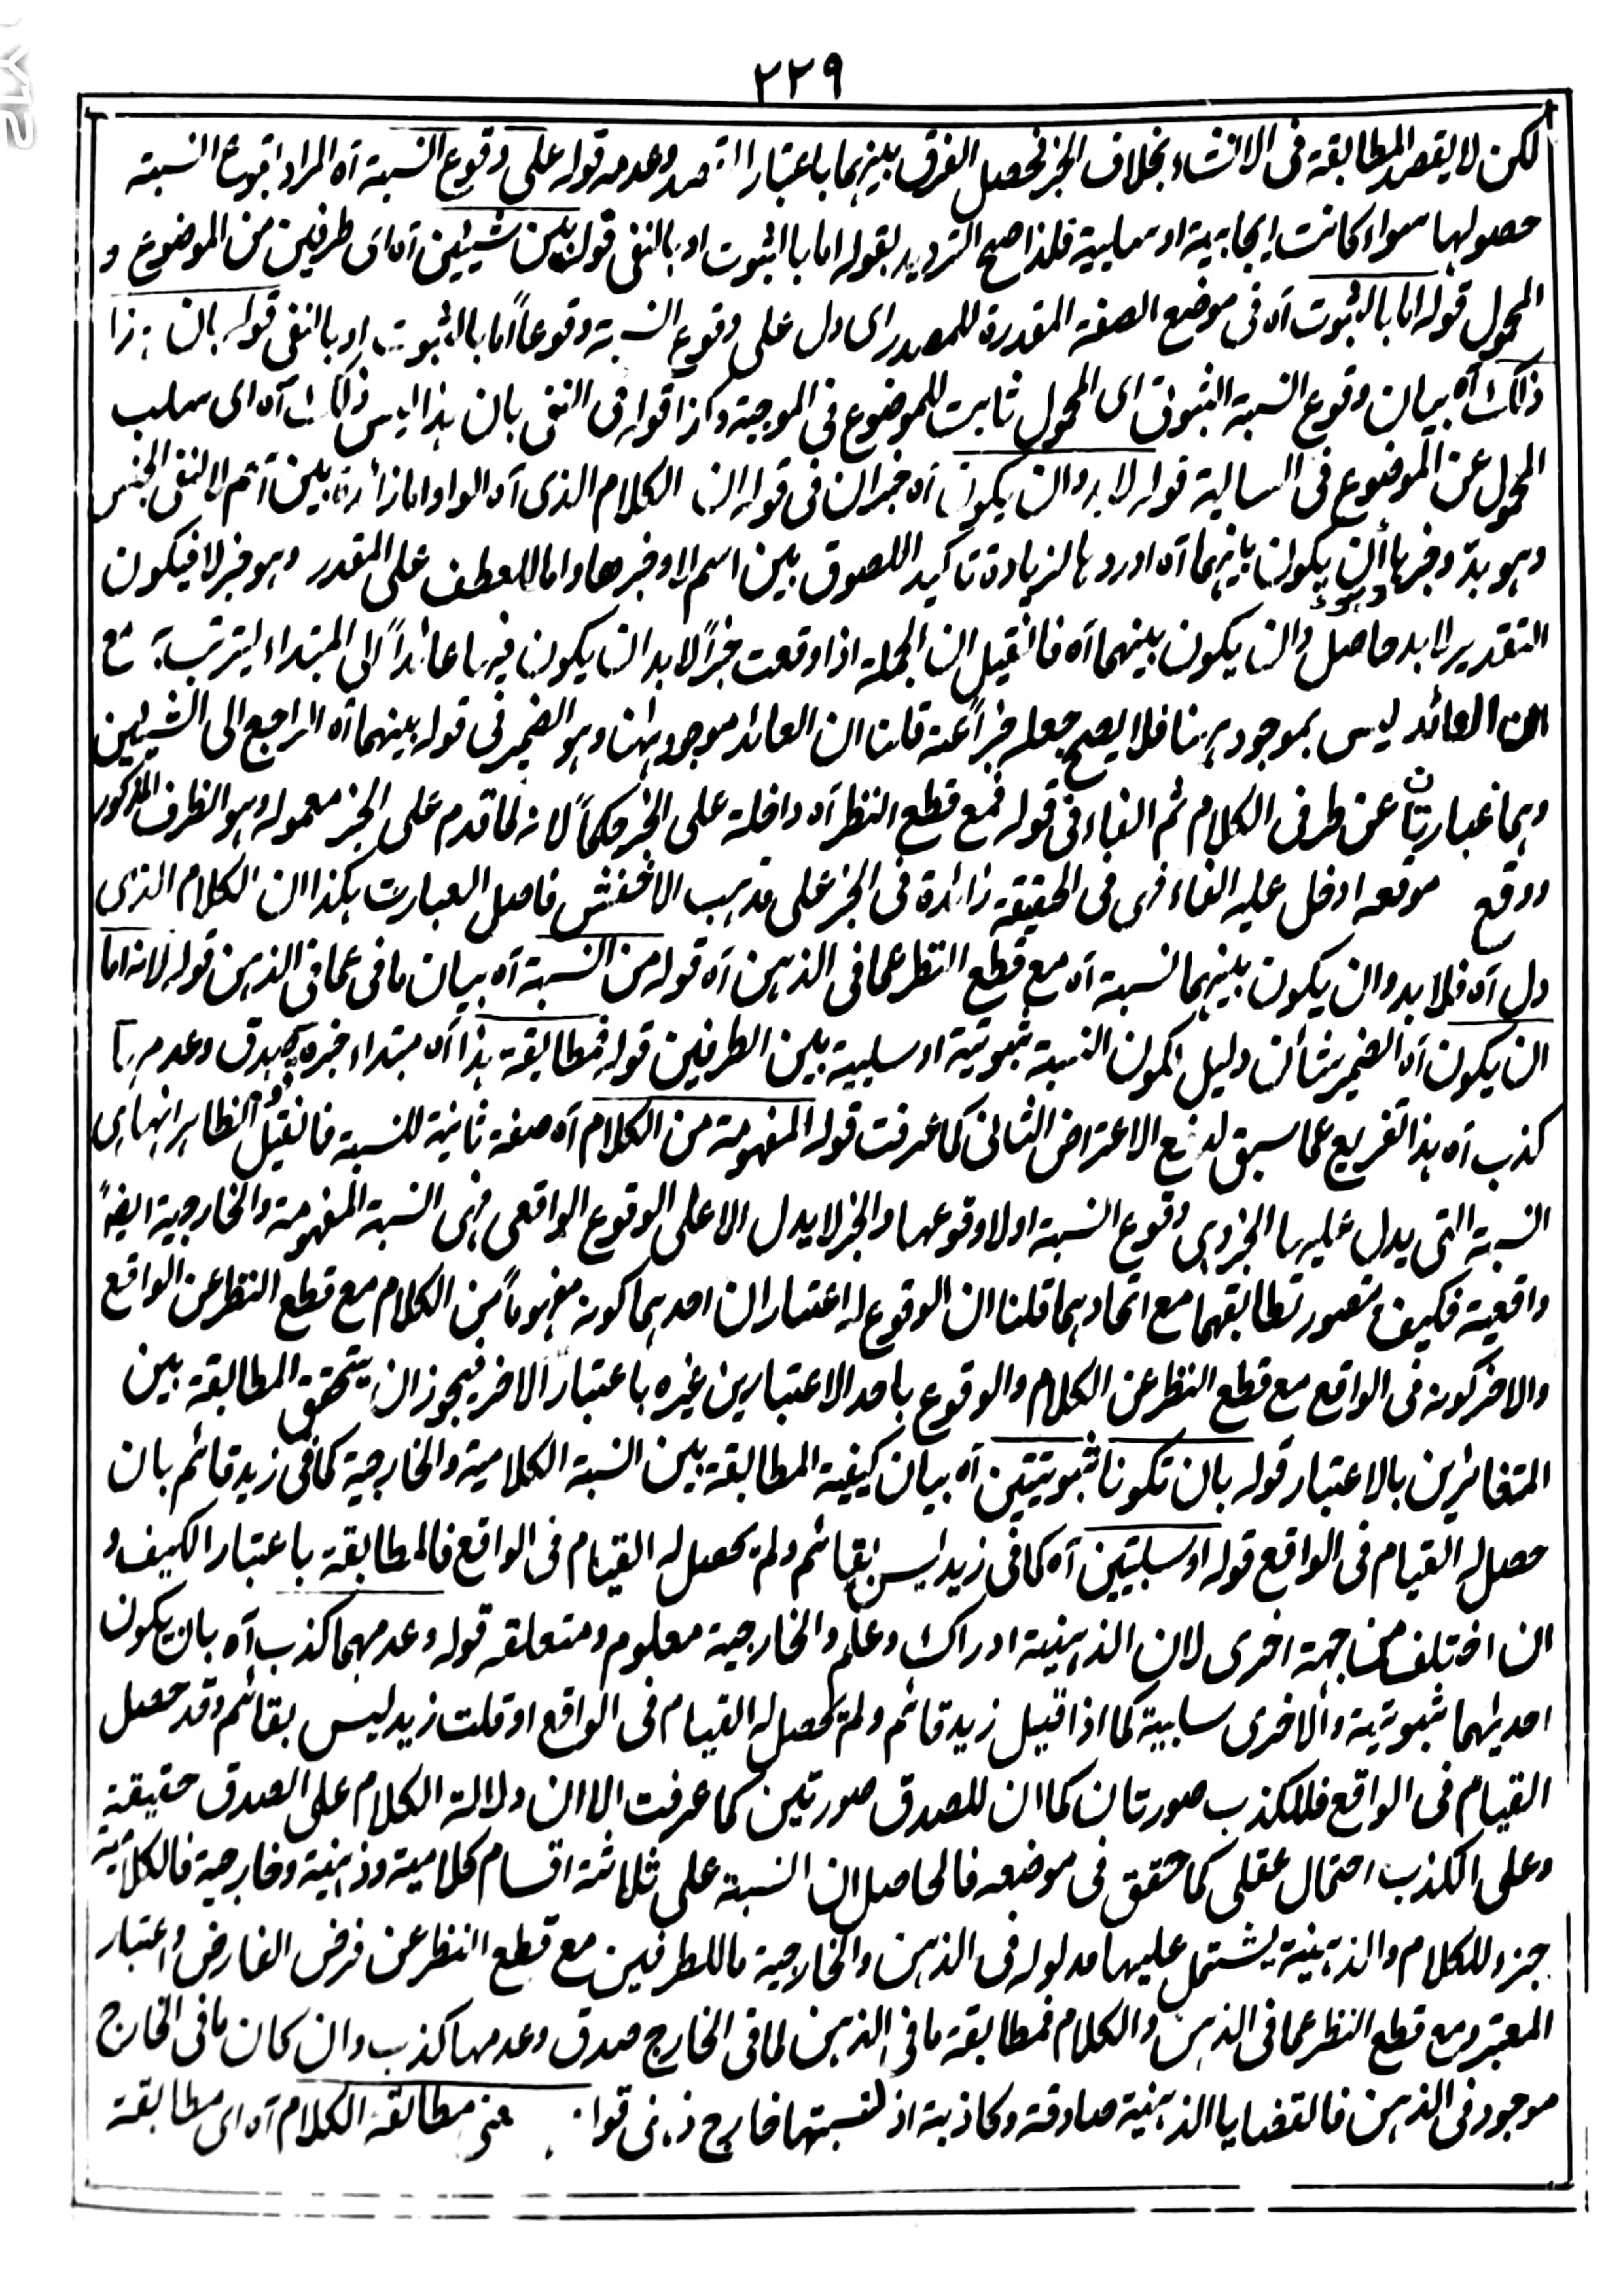 ٢٢٩
لكن لا يقصد المطابقة فى الانشاء بخلاف الخبر فحصل الفرق بينهما باعتبار القصد وعدمه قوله على وقوع النسبة آه المراد بوقوع النسبة
حصولها سواء كانت ايجابية او سلبية فلذا صح الترديد بقوله اما بالثبوت او بالنفى قوله بين شيئين آه اى طرفين من الموضوع و
المحمول قوله اما بالثبوت آه فى موضع الصفة المقدرة للمصدر اى دل على وقوع النسبة وقوعاً اما بالثبوت او بالنفى قوله بان هذا
ذاك آه بيان وقوع النسبة الثبوتى اى المحمول ثابت للموضوع فى الموجبة وكذا قوله فى النفى بان هذا ليس ذاك آه اى سلب
المحمول عن الموضوع فى السالبة قوله لا بد وان يكون آه خبر ان فى قوله ان الكلام الذى آه الواو اما زائدة بين اسم لا لنفى الجنس
وهو بد وخبرها ان يكون بينهما آه اوردها لزيادة تأكيد اللصوق بين اسم لا وخبرها واما للعطف على المقدر وهو خبر لا فيكون
التقدير لا بد حاصل وان يكون بينهما آه فان قيل ان الجملة اذا وقعت خبراً لا بد ان يكون فيها عائداً الى المبتداء ليترتب به مع
ان العائد ليس بموجود ههنا فلا يصح جعله خبراً عنه قلنا ان العائد موجود ههنا وهو الضمير فى قوله بينهما آه الراجع الى الشيئين
وهما عبارتان عن طرفى الكلام ثم الفاء فى قوله فمع قطع النظر آه داخلة على الخبر حكماً لانه لما قدم على الخبر معموله وهو الظرف المذكور
ووقع موقعه ادخل عليه الفاء فهى فى الحقيقة زائدة فى الخبر على مذهب الاخفش فاصل العبارت هكذا ان الكلام الذى
دل آه فلا بد وان يكون بينهما نسبة آه مع قطع النظر عما فى الذهن آه قوله من النسبة آه بيان ما فى عما فى الذهن قوله لانه اما
ان يكون آه الضمير شأن دليل لكون النسبة ثبوتية او سلبية بين الطرفين قوله فمطابقة هذا آه مبتداء خبره صدق وعدمها
كذب آه هذا تفريع عما سبق لدفع الاعتراض الثانى كما عرفت قوله المفهومة من الكلام آه صفة ثانية للنسبة فان قيل الظاهر انها اى
النسبة التى يدل عليها الخبر وهى وقوع النسبة او لا وقوعها والخبر لا يدل الا على الوقوع الواقعى فهى النسبة المفهومة والخارجية ايضاً
واقعية فكيف يتصور تطابقهما مع اتحادهما قلنا ان الوقوع له اعتباران احدهما كونه مفهوماً من الكلام مع قطع النظر عن الواقع
والاخر كونه فى الواقع مع قطع النظر عن الكلام والوقوع باحد الاعتبارين غيره باعتبار الاخر فيجوز ان يتحقق المطابقة بين
المتغائرين بالاعتبار قوله بان تكونا ثبوتيتين آه بيان كيفية المطابقة بين النسبة الكلامية والخارجية كما فى زيد قائم بان
حصل له القيام فى الواقع قوله او سلبيتين آه كما فى زيد ليس بقائم ولم يحصل له القيام فى الواقع فالمطابقة باعتبار الكيف و
ان اختلف من جهة اخرى لان الذهنية ادراك وعلم والخارجية معلوم ومتعلقه قوله وعدمهما كذب آه بان يكون
احديهما ثبوتية والاخرى سلبية كما اذا قيل زيد قائم ولم يحصل له القيام فى الواقع او قلت زيد ليس بقائم وقد حصل
القيام فى الواقع فللكذب صورتان كما ان للصدق صورتين كما عرفت الا ان دلالة الكلام على الصدق حقيقة
وعلى الكذب احتمال عقلى كما حقق فى موضعه فالحاصل ان النسبة على ثلاثة اقسام كلامية وذهنية وخارجية فالكلامية
جزء للكلام والذهنية يشتمل عليها مدلوله فى الذهن والخارجية ما للطرفين مع قطع النظر عن فرض الفارض واعتبار
المعتبر ومع قطع النظر عما فى الذهن والكلام فمطابقة ما فى الذهن لما فى الخارج صدق وعدمها كذب وان كان ما فى الخارج
موجود فى الذهن فالقضايا الذهنية صادقة وكاذبة اذ لنسبتها خارج ذهنى مطابقة الكلام آه اى مطابقة